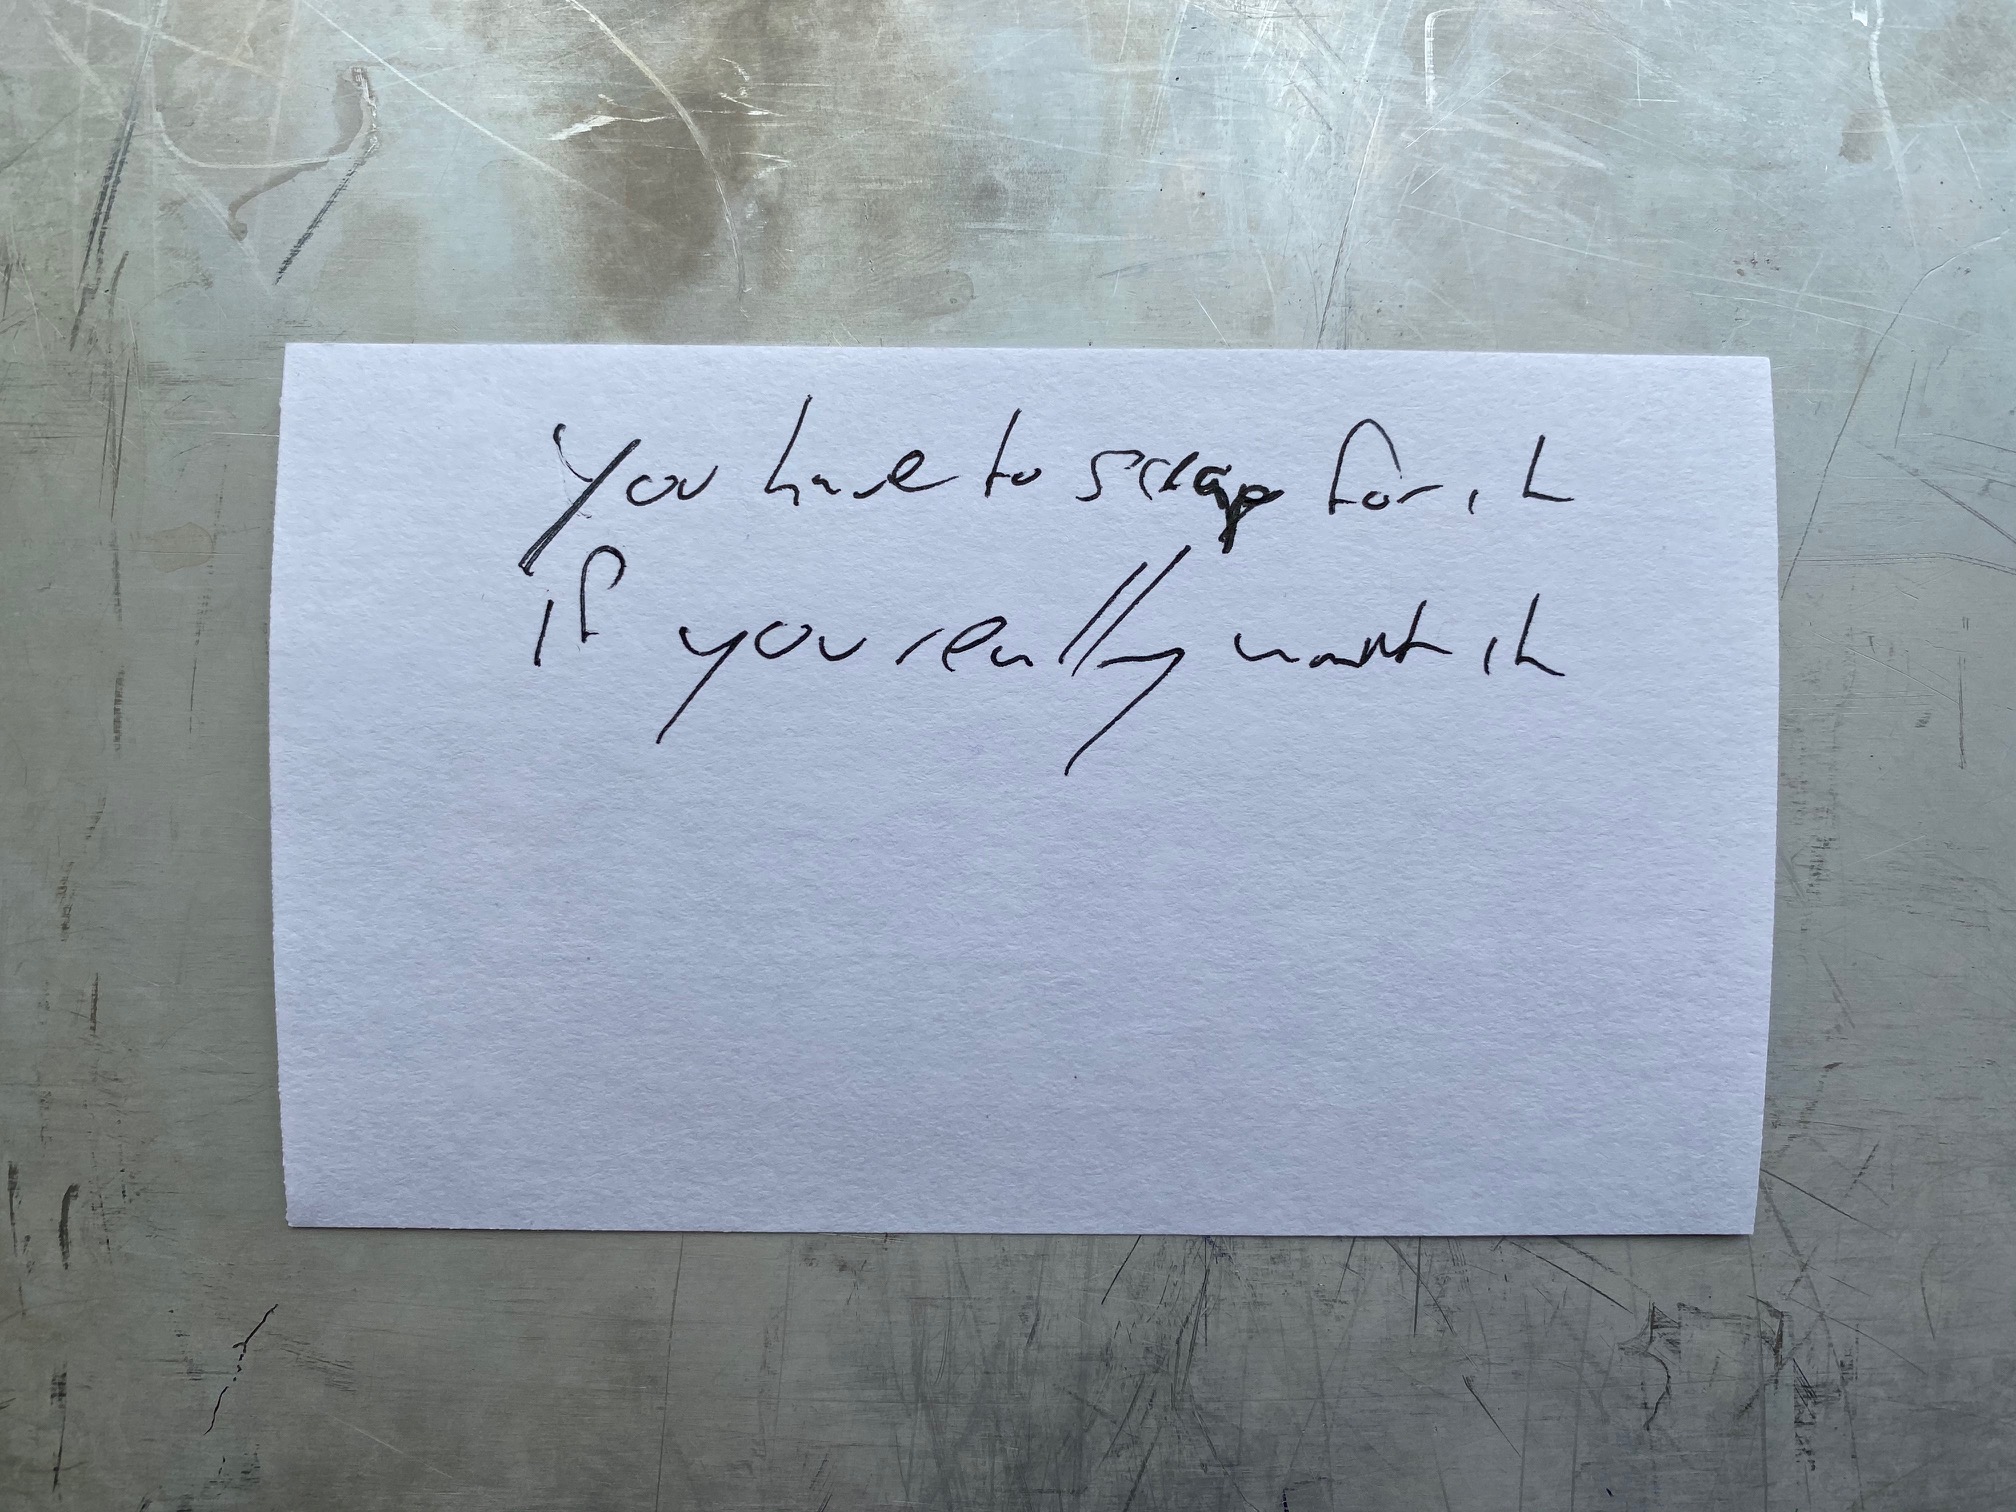 You have to scrap for it
if you really want it